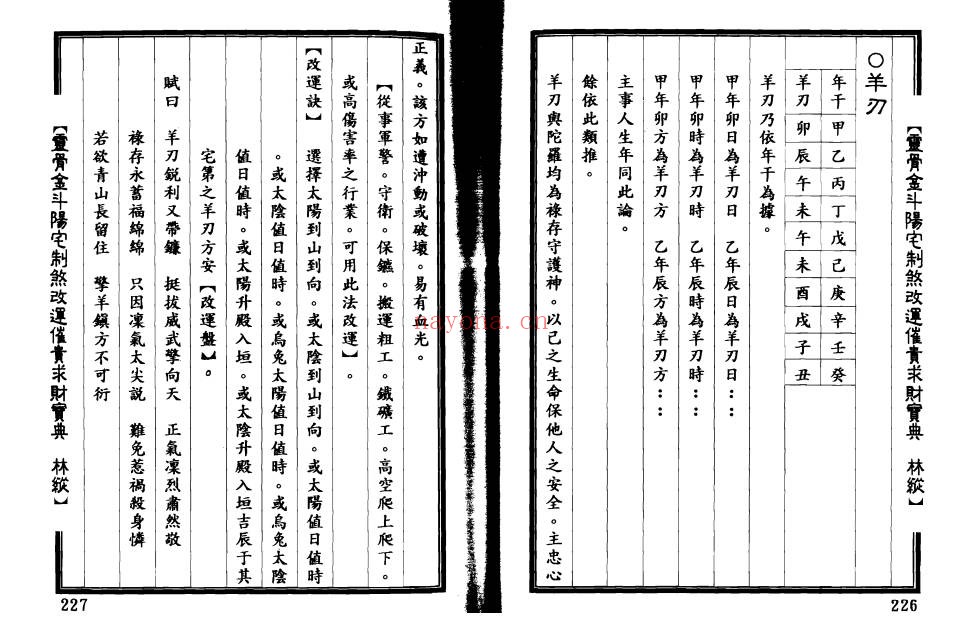 【靈骨金斗陽宅制煞改運催貴求財寶典 林縱】
○羊刃
年干 甲 乙 丙 丁 戊 己 庚 辛 壬 癸
羊刃 卯 辰 午 未 午 未 酉 戌 子 丑
羊刃乃依年干為據。
甲年卯日為羊刃日 乙年辰日為羊刃日：：
甲年卯時為羊刃時 乙年辰時為羊刃時：：
甲年卯方為羊刃方 乙年辰方為羊刃方：：
主事人生年同此論。
餘依此類推。
羊刃與陀羅均為祿存守護神。以己之生命保他人之安全。主忠心
226
正義。該方如遭沖動或破壞。易有血光。
【從事軍警。守衛。保鑣。搬運粗工。鐵礦工。高空爬上爬下。
或高傷害率之行業。可用此法改運】。
【改運訣】 選擇太陽到山到向。或太陰到山到向。或太陽值日值時
。或太陰值日值時。或烏兔太陽值日值時。或烏兔太陰
值日值時。或太陽升殿入垣。或太陰升殿入垣吉辰于其
宅第之羊刃方安【改運盤】。
賦曰 羊刃銳利又帶鐮 挺拔威武擎向天 正氣凜烈肅然敬
祿存永蓄福綿綿 只因凜氣太尖說 難免惹禍殺身憐
若欲青山長留住 擎羊鎮方不可衍
【靈骨金斗陽宅制煞改運催貴求財寶典 林縱】
227
nayona.cn